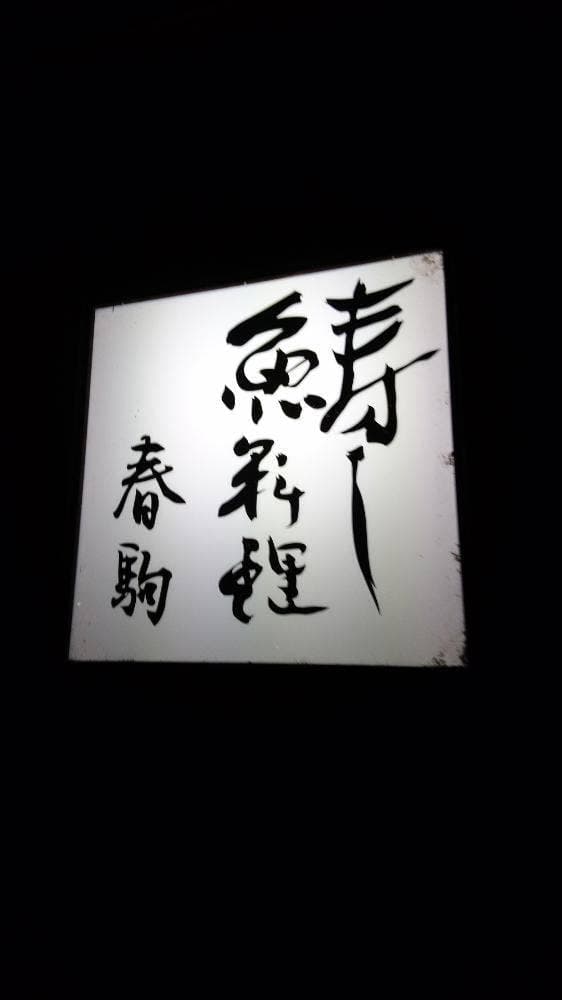 寿し
魚料理
春駒